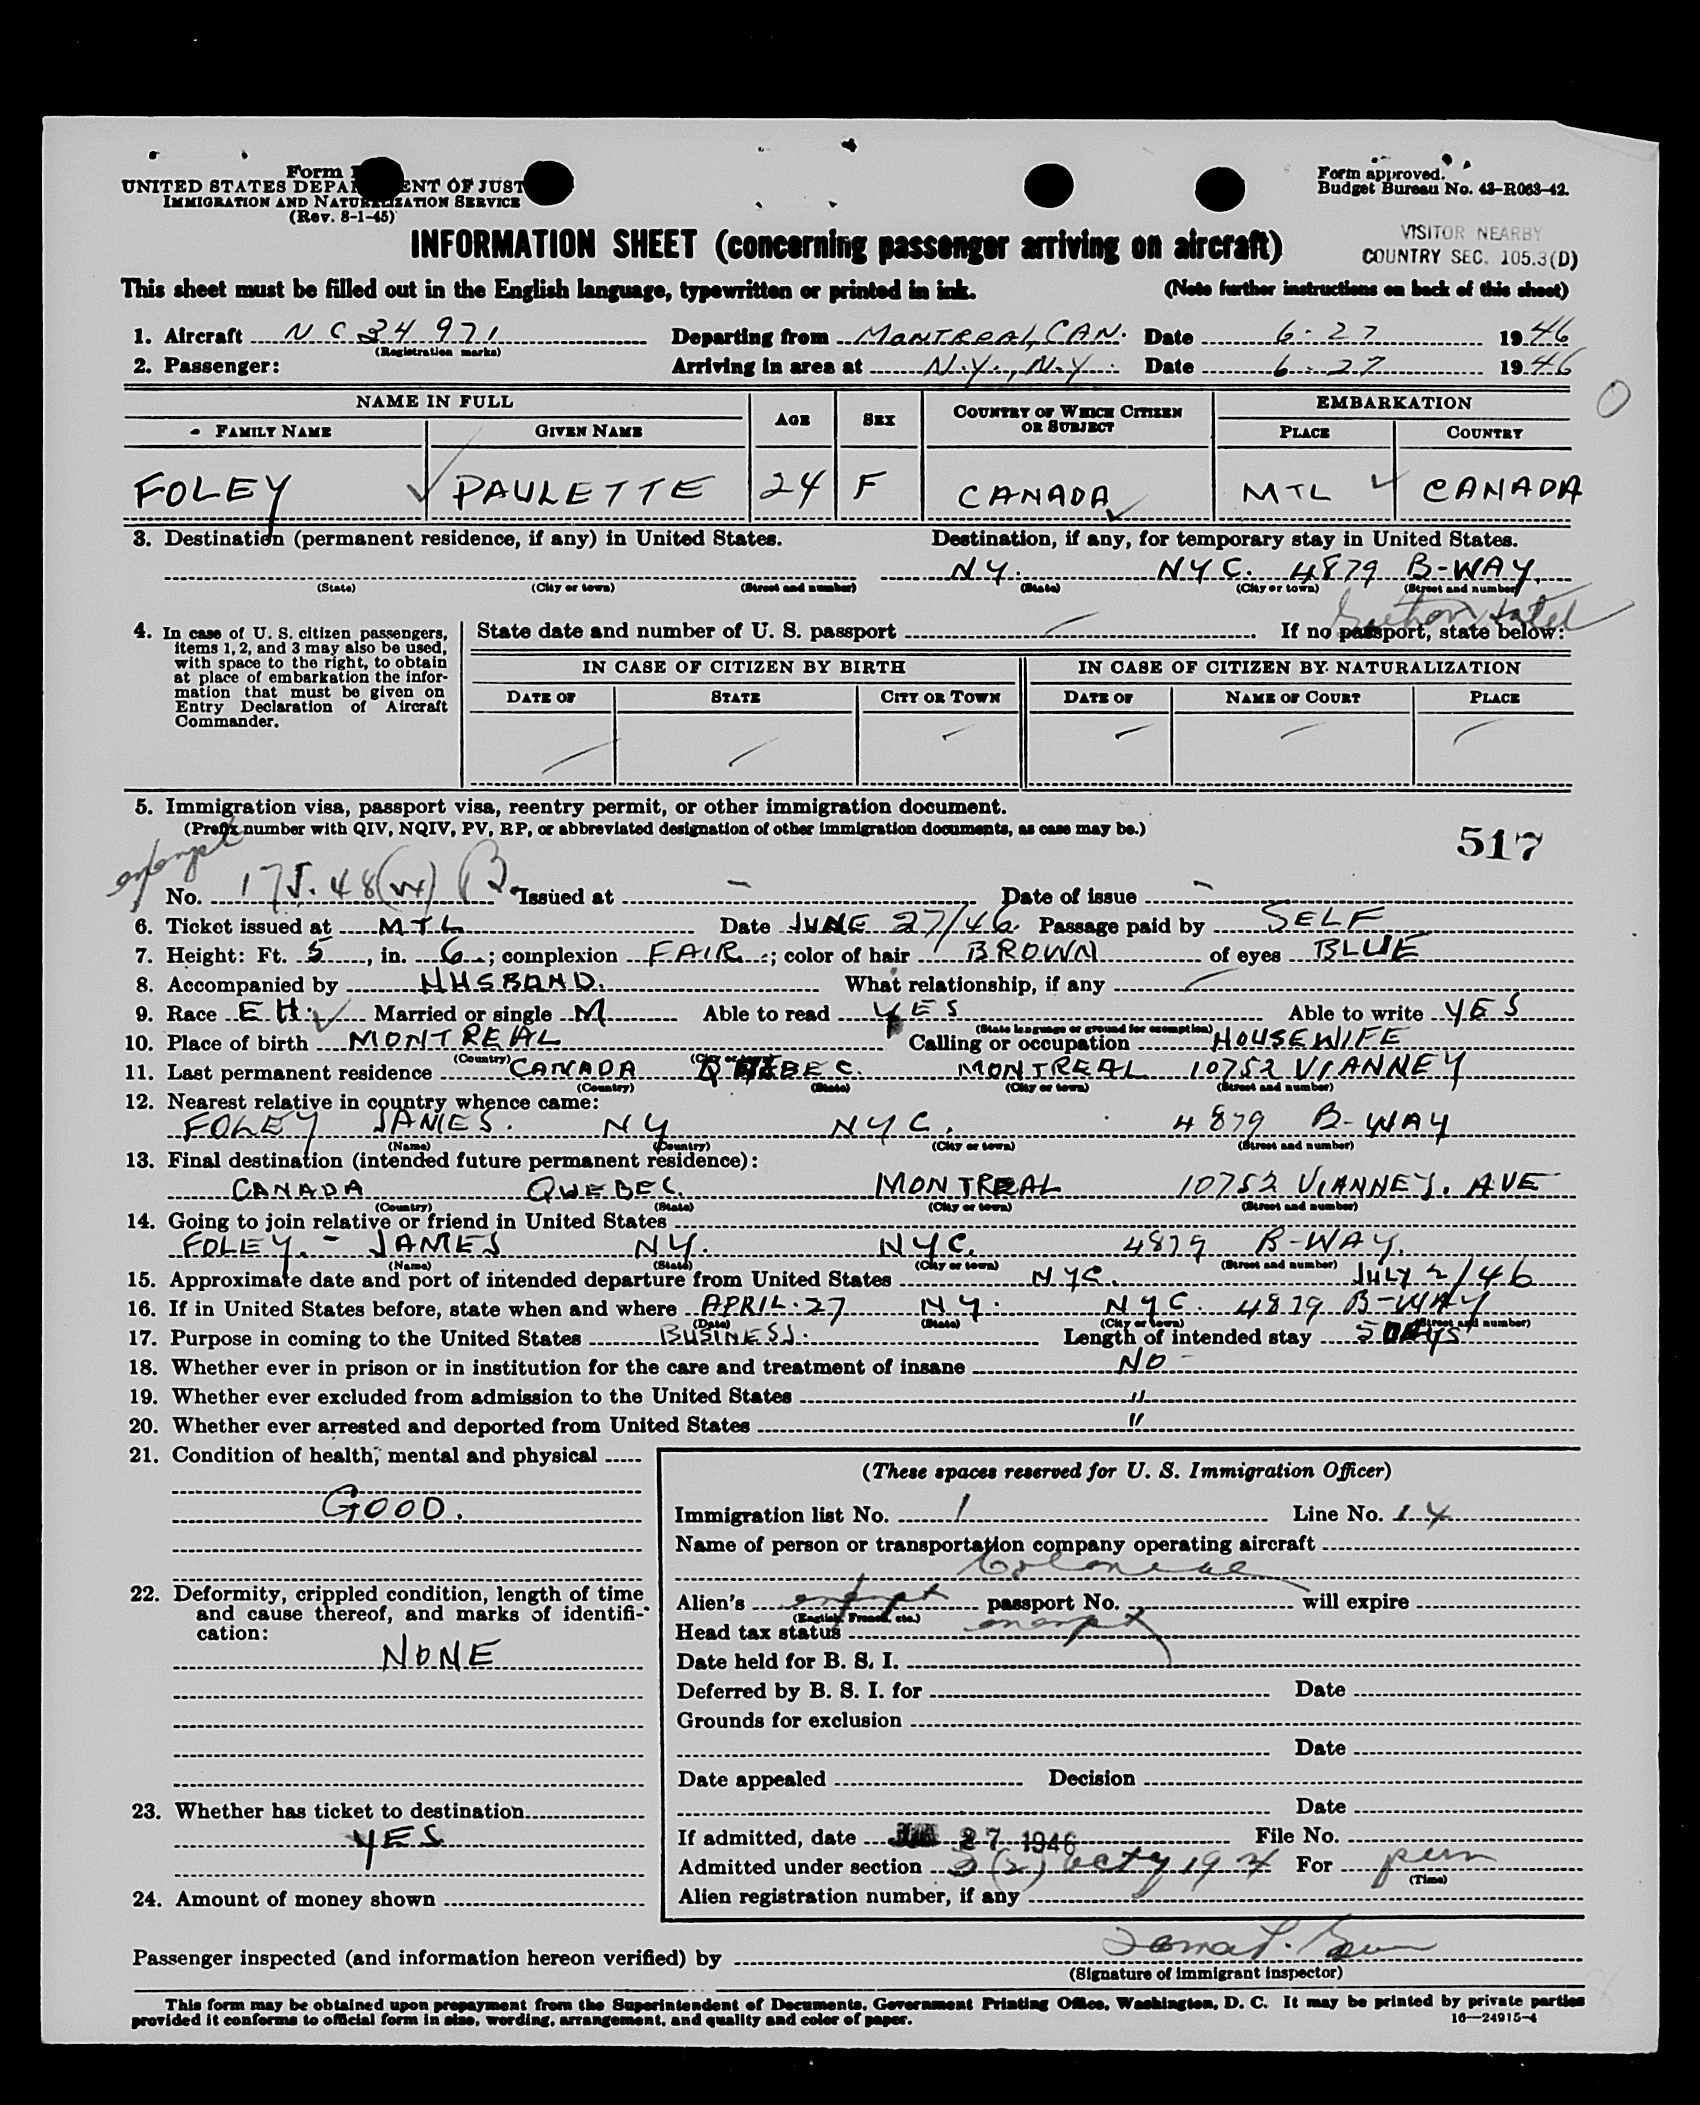 Form
UNITED STATES DEPARTMENT OF JUST
IMMIGRATION AND NATURALIZATION SERVICE
(Rev. 8-1-45)
Form approved.
Budget Bureau No. 43-R063-42.
INFORMATION SHEET (concerning passenger arriving on aircraft)
VISITOR NEARBY
COUNTRY SEC. 105.3(D)
This sheet must be filled out in the English language, typewritten or printed in ink. (Note further instructions on back of this sheet)
1. Aircraft NC 34971 Departing from MONTREAL, CAN. Date 6-27 1946
(Registration marks)
2. Passenger: Arriving in area at N.Y., N.Y. Date 6-27 1946
NAME IN FULL AGE SEX COUNTRY OF WHICH CITIZEN OR SUBJECT EMBARKATION
FAMILY NAME GIVEN NAME PLACE COUNTRY
FOLEY PAULETTE 24 F CANADA MTL CANADA
3. Destination (permanent residence, if any) in United States. Destination, if any, for temporary stay in United States.
NY. NYC. 4879 B-WAY.
(State) (City or town) (Street and number) (State) (City or town) (Street and number)
Hotel
4. In case of U. S. citizen passengers, items 1, 2, and 3 may also be used, with space to the right, to obtain at place of embarkation the information that must be given on Entry Declaration of Aircraft Commander.
State date and number of U. S. passport If no passport, state below:
IN CASE OF CITIZEN BY BIRTH IN CASE OF CITIZEN BY NATURALIZATION
DATE OF STATE CITY OR TOWN DATE OF NAME OF COURT PLACE
5. Immigration visa, passport visa, reentry permit, or other immigration document.
(Prefix number with QIV, NQIV, PV, RP, or abbreviated designation of other immigration documents, as case may be.)
517
exempt
No. 175.48(w) B. Issued at - Date of issue -
6. Ticket issued at MTL Date JUNE 27/46. Passage paid by SELF
7. Height: Ft. 5, in. 6; complexion FAIR; color of hair BROWN of eyes BLUE
8. Accompanied by HUSBAND. What relationship, if any
9. Race EH. Married or single M Able to read YES Able to write YES
(State language or ground for exemption)
10. Place of birth MONTREAL Calling or occupation HOUSEWIFE
(Country) (City or town)
11. Last permanent residence CANADA QUEBEC. MONTREAL 10752 VIANNEY
(Country) (State) (City or town) (Street and number)
12. Nearest relative in country whence came:
FOLEY JAMES. NY NYC. 4879 B-WAY
(Name) (Country) (City or town) (Street and number)
13. Final destination (intended future permanent residence):
CANADA QUEBEC. MONTREAL 10752 VIANNEY. AVE
(Country) (State) (City or town) (Street and number)
14. Going to join relative or friend in United States
FOLEY. - JAMES NY. NYC. 4879 B-WAY.
(Name) (State) (City or town) (Street and number)
15. Approximate date and port of intended departure from United States NYC. JULY 2/46
16. If in United States before, state when and where APRIL. 27 NY. NYC. 4879 B-WAY
(Date) (State) (City or town) (Street and number)
17. Purpose in coming to the United States BUSINESS. Length of intended stay 5 DAYS
18. Whether ever in prison or in institution for the care and treatment of insane NO -
19. Whether ever excluded from admission to the United States "
20. Whether ever arrested and deported from United States "
21. Condition of health, mental and physical
GOOD.
22. Deformity, crippled condition, length of time and cause thereof, and marks of identification:
NONE
23. Whether has ticket to destination
YES
24. Amount of money shown
(These spaces reserved for U. S. Immigration Officer)
Immigration list No. 1 Line No. 14
Name of person or transportation company operating aircraft
Colonial
Alien's exempt passport No. will expire
(English, French, etc.)
Head tax status exempt
Date held for B. S. I.
Deferred by B. S. I. for Date
Grounds for exclusion
Date
Date appealed Decision
Date
If admitted, date 27 1946 File No.
Admitted under section 3(2) act of 1924 For
(Time)
Alien registration number, if any
Passenger inspected (and information hereon verified) by
(Signature of immigrant inspector)
This form may be obtained upon prepayment from the Superintendent of Documents, Government Printing Office, Washington, D. C. It may be printed by private parties
provided it conforms to official form in size, wording, arrangement, and quality and color of paper.
16—24915-4